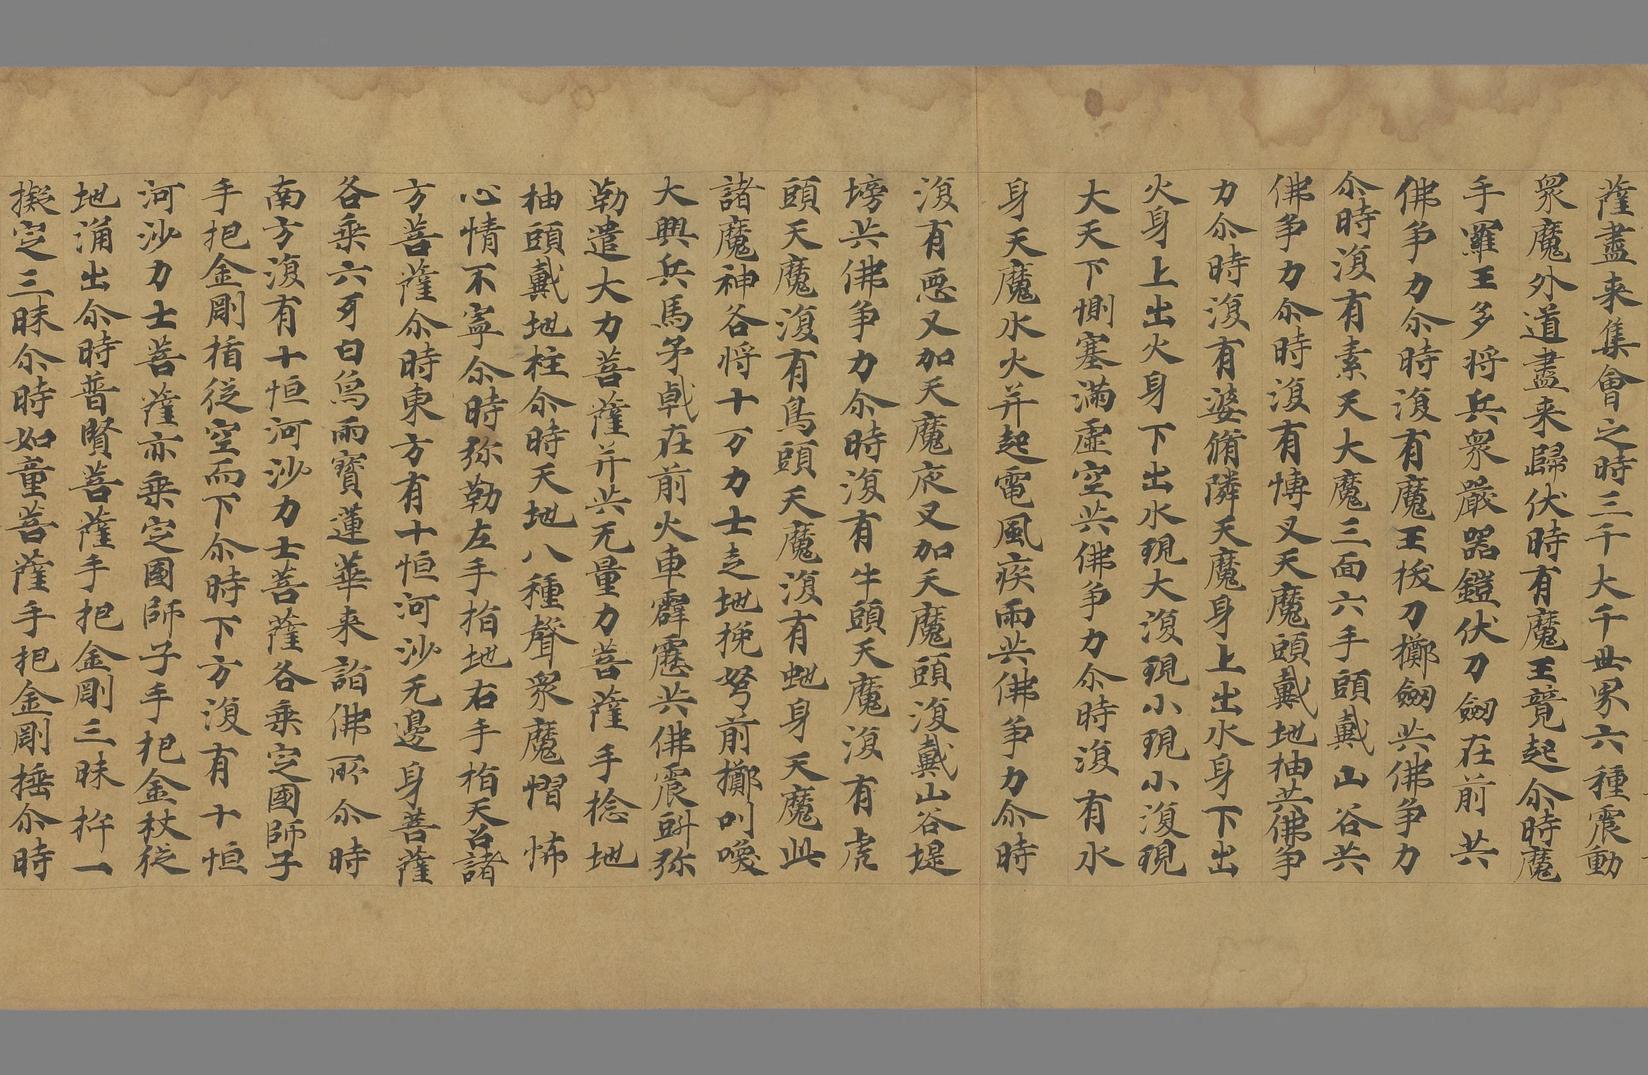 薩盡来集會之時三千大千世界六種震動
衆魔外道盡来歸伏時有魔王競起尒時魔
手羅王多将兵衆嚴器鎧伏刀劔在前共
佛争力尒時復有魔王拔刀擲劔共佛争力
尒時復有素天大魔三面六手頭戴山谷共
佛争力尒時復有愽叉天魔頭戴地抽共佛争
力尒時復有婆脩隣天魔身上出水身下出
火身上出火身下出水現大復現小現小復現
大天下惻塞滿虛空共佛争力尒時復有水
身天魔水火并起電風疾雨共佛争力尒時
復有惡叉加天魔夜叉加天魔頭復戴山谷堤
塝共佛争力尒時復有牛頭天魔復有虎
頭天魔復有鳥頭天魔復有虵身天魔此
諸魔神各将十万力士走地挽弩前擲叫喚
大興兵馬矛戟在前火車霹靂共佛震㪷弥
勒遣大力菩薩并共无量力菩薩手捻地
抽頭戴地柱尒時天地八種聲衆魔慴怖
心情不寧尒時弥勒左手指地右手指天召諸
方菩薩尒時東方有十恒河沙无邊身菩薩
各乗六牙白烏雨寳蓮華来詣佛所尒時
南方復有十恒河沙力士菩薩各乗㝎國師子
手把金剛楯從空而下尒時下方復有十恒
河沙力士菩薩亦乗㝎國師子手把金杖從
地涌出尒時普賢菩薩手把金剛三昧杵一
擬㝎三昧尒時如童菩薩手把金剛捶尒時